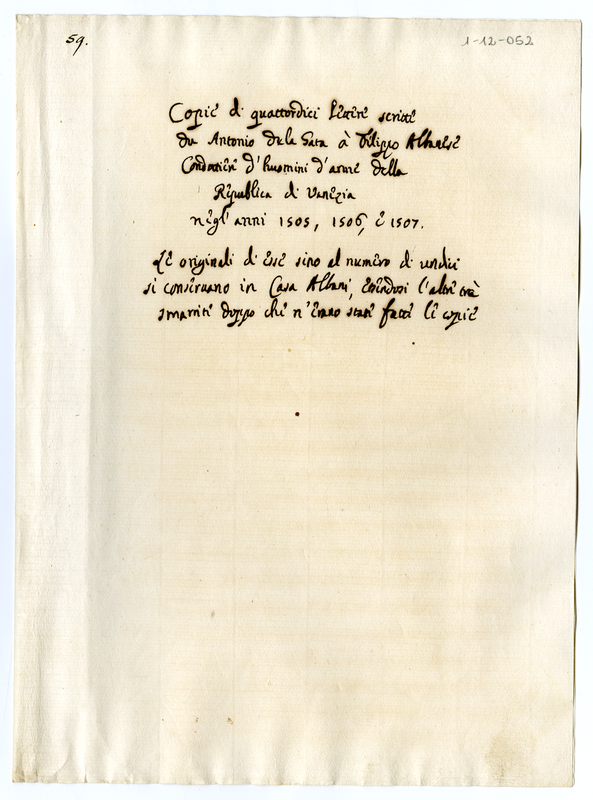 59.
1-12-052
Copie di quattordici lettere scritte
da Antonio dela Sata à Filippo Albanese
Condottier d'huomini d'arme della
Republica di Venezia
negl'anni 1505, 1506, e 1507.
Le originali di esse sino al numero di undici
si conservano in Casa Albani, essendosi l'altre trè
smarrite doppo che n'erano state fatte le copie